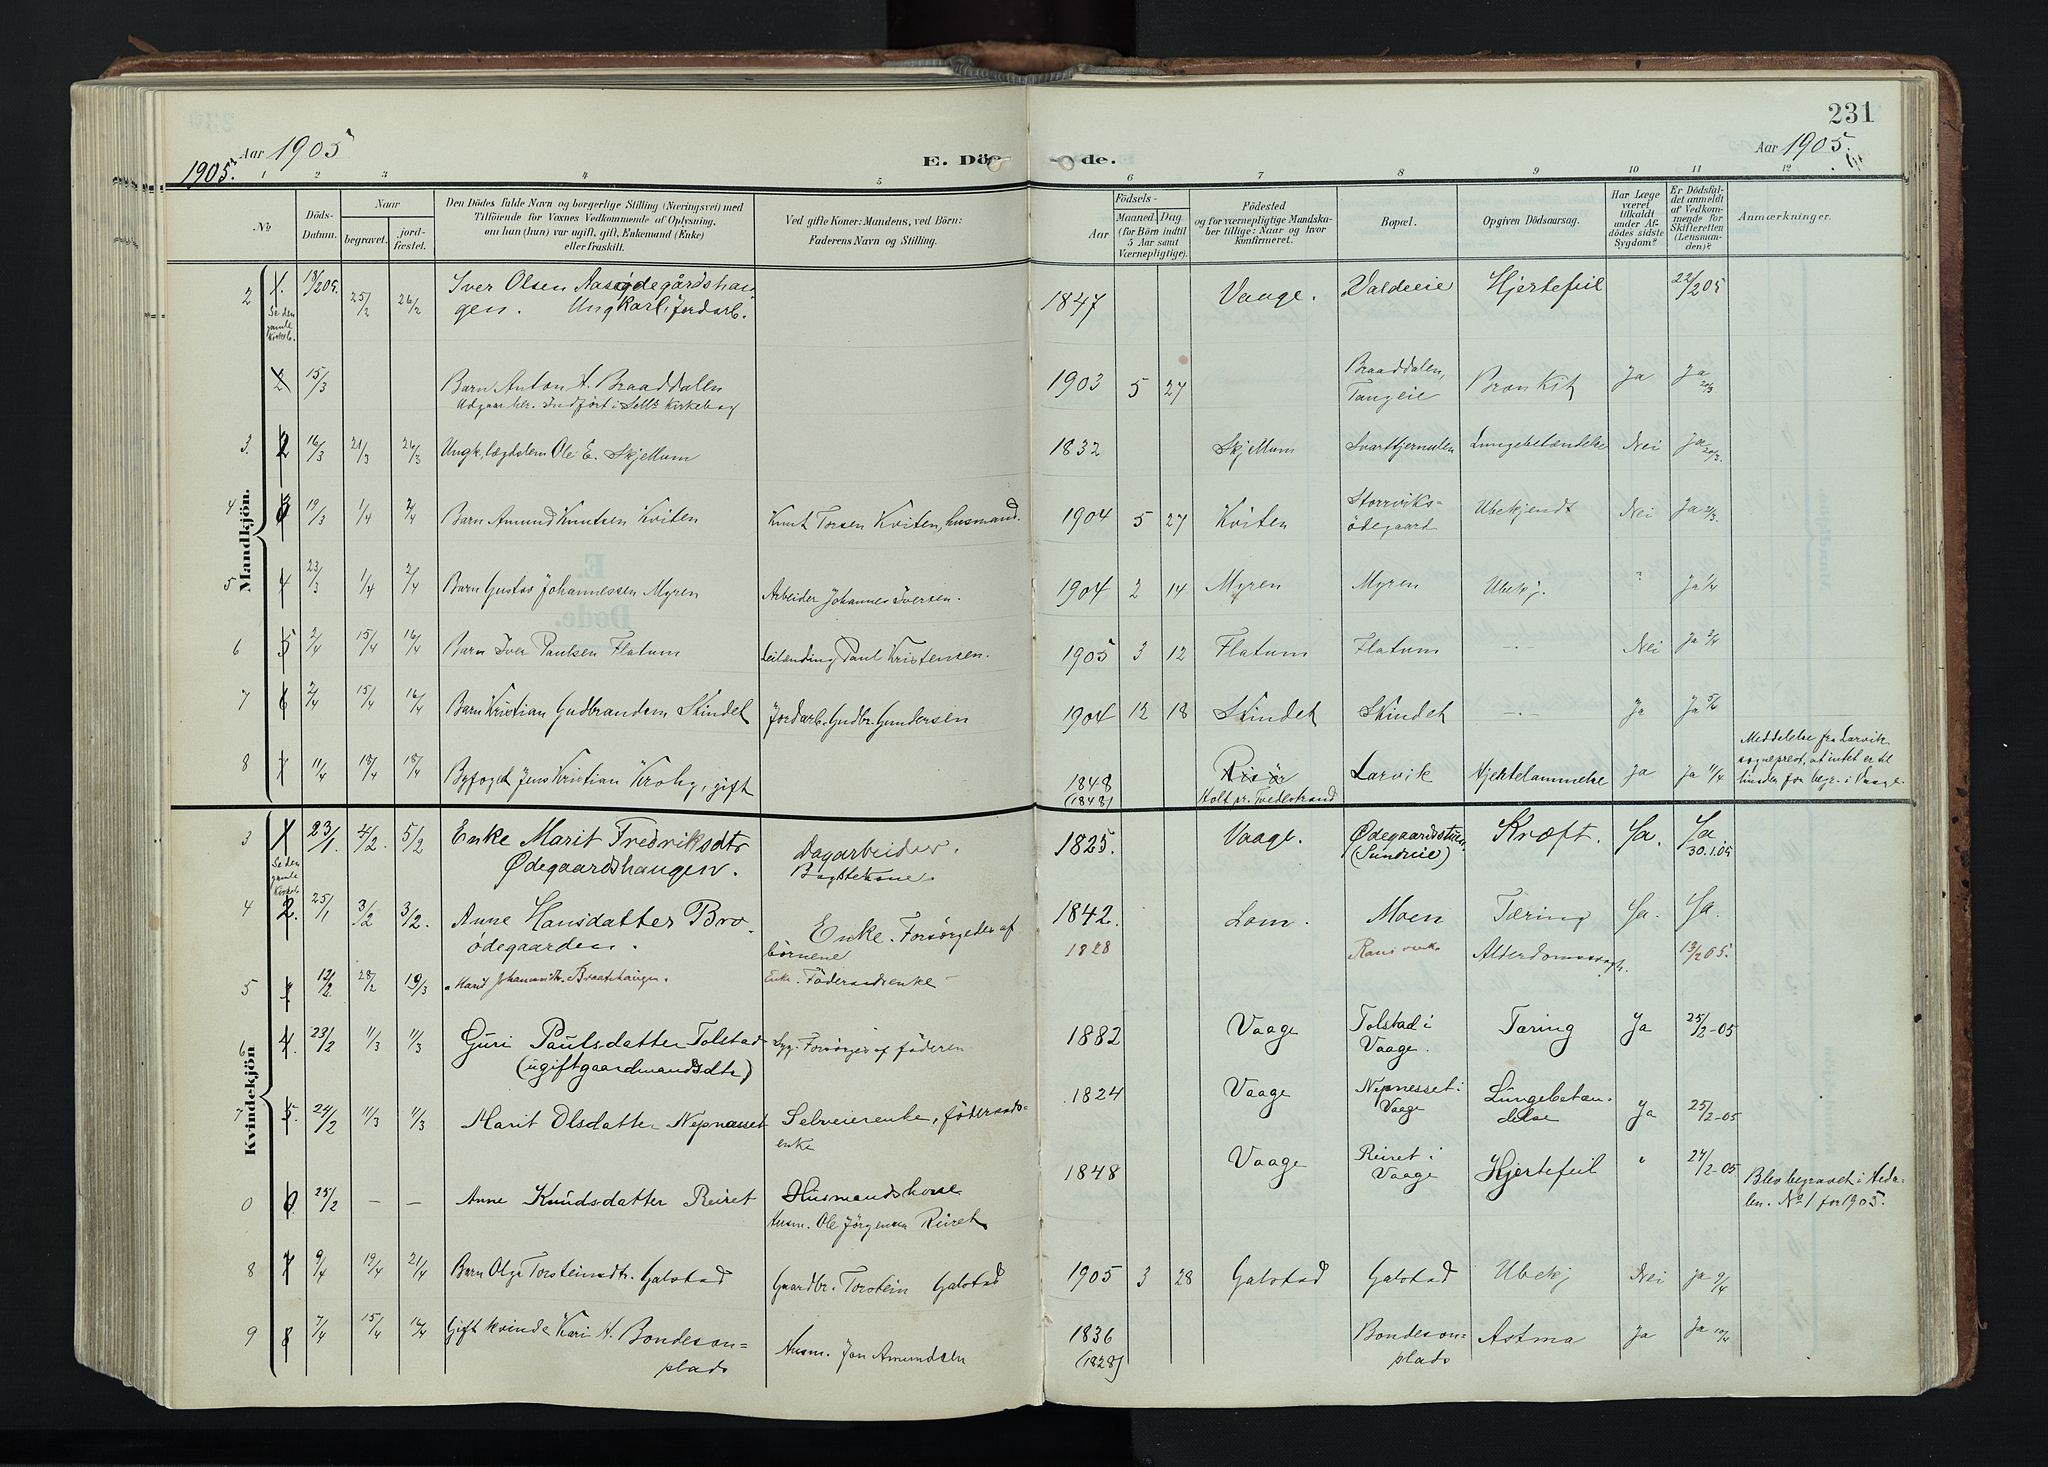 231
Aar 1905
1905.
E. Dö
de.
Aar 1905.
1 2 3 4 5 6 7 8 9 10 11 12
No
Döds-Datum.
Naar
begravet.
jord-fæstet.
Den Dödes fulde Navn og borgerlige Stilling (Næringsvei) med
Tilföiende for Voxnes Vedkommende af Oplysning,
om han (hun) var ugift, gift, Enkemand (Enke)
eller fraskilt.
Ved gifte Koner: Mandens, ved Börn:
Faderens Navn og Stilling.
Födsels-
Aar
Maaned
Dag
(for Börn indtil
5 Aar samt
Værnepligtige).
Födested
og for værnepligtige Mandska-
ber tillige: Naar og hvor
konfirmeret.
Bopæl.
Opgiven Dödsaarsag.
Har Læge
været
tilkaldt
under Af-
dödes sidste
Sygdom?
Er Dödsfal-
det anmeldt
af Vedkom-
mende for
Skifteretten
(Lensman-
den)?
Anmærkninger.
Mandkjön.
2 1. 18/2 05. 25/2 26/2 Iver Olsen Aasødegårdshau- 1847 Vaage. Valdeeie Hjertefeil 22/2 05
Se den gamle Kirkeb. gen. Ungkarl, jordarb.
2 15/3 Barn Anton A. Braaddalen 1903 5 27 Braaddalen, Tangeie Bronkit Ja Ja 20/3
Udgaar her. Indført i Sells Kirkebog
3. 2 16/3 21/3 26/3 Ungk. lægdslem Ole E. Skjellum 1832 Skjellum Svarttjernslien Lungebetændelse Nei Ja 20/3.
4 3 19/3 1/4 2/4 Barn Amund Knutsen Kviten Knut Torsen Kviten, husmand. 1904 5 27 Kviten Storviks-ødegaard Ubekjendt Nei Ja 21/3.
5 4 23/3 1/4 2/4 Barn Gustav Johannessen Myren Arbeider Johannes Iversen. 1904 2 14 Myren Myren Ubekj. ? Ja 1/4
6 5 2/4 15/4 16/4 Barn Iver Paulsen Flatum Leilænding Paul Kristensen. 1905 3 12 Flatum Flatum -·- Nei Ja 2/4
7 6 2/4 15/4 16/4 Barn Kristian Gudbrandsen Skindet Jordarb. Gudbr. Gundersen 1904 12 18 Skindet Skindet -·- Ja Ja 5/4
8 7 11/4 18/4 18/4 Byfoged Jens Kristian Krohg, gift 1848 (1848) Risör Holt pr. Tvedestrand Larvik Hjertelammelse Ja Ja 11/4 Meddelelse fra Larvik
sogneprest, at intet er til
hinder for begr. i Vaage.
Kvindekjön
3 1 23/1. 4/2. 5/2 Enke Marit Fredriksdtr Dagarbeider. 1825. Vaage. Ødegaardsstuen (Sundeie) Kræft. Ja. Ja. 30.1.05
Se den gamle Kirkeb. Ødegaardshaugen. Bagstekone.
4 2. 25/1 3/2 3/2. Anne Hansdatter Bro- Enke. Forsørgedes af 1842. Lom. Moen Tæring Ja. Ja.
ødegaarden. börnene
5 12/2 28/2 19/3 Marit Johannesdtr. Braatehaugen. Enke. Föderaadsenke 1828 Alderdomssvagh. 13/2 05.
6 4. 23/2 11/3 11/3 Guri Paulsdatter Tolstad Syg. Forsörges af föderen 1882 Vaage Tolstad i Vaage. Tæring Ja 25/2-05
(ugift gaardmandsdtr)
7 5. 24/2 11/3 11/3 Marit Olsdatter Nepnesset Selveierenke, föderaads-enke 1824 Vaage Nepnesset i Vaage Lungebetæn-delse Ja 25/2-05
0 6 25/2 - - Anne Knudsdatter Reiret Husmandskone 1848 Vaage Reiret i Vaage Hjertefeil " 27/2-05 Blev begravet i Heda-
Husm. Ole Jørgensen Reiret len. No 1 for 1905.
8 7 9/4 19/4 21/4 Barn Olga Torsteinsdtr. Galstad Gaardbr. Torstein Galstad 1905 3 28 Galstad Galstad Ubekj Nei Ja 9/4
9 8 7/4 15/4 16/4 Gift kvinde Kari A. Bondeson- Husm. Jon Amundsen 1836 (1828) Bondeson-plads Astma Ja Ja 10/4
plads